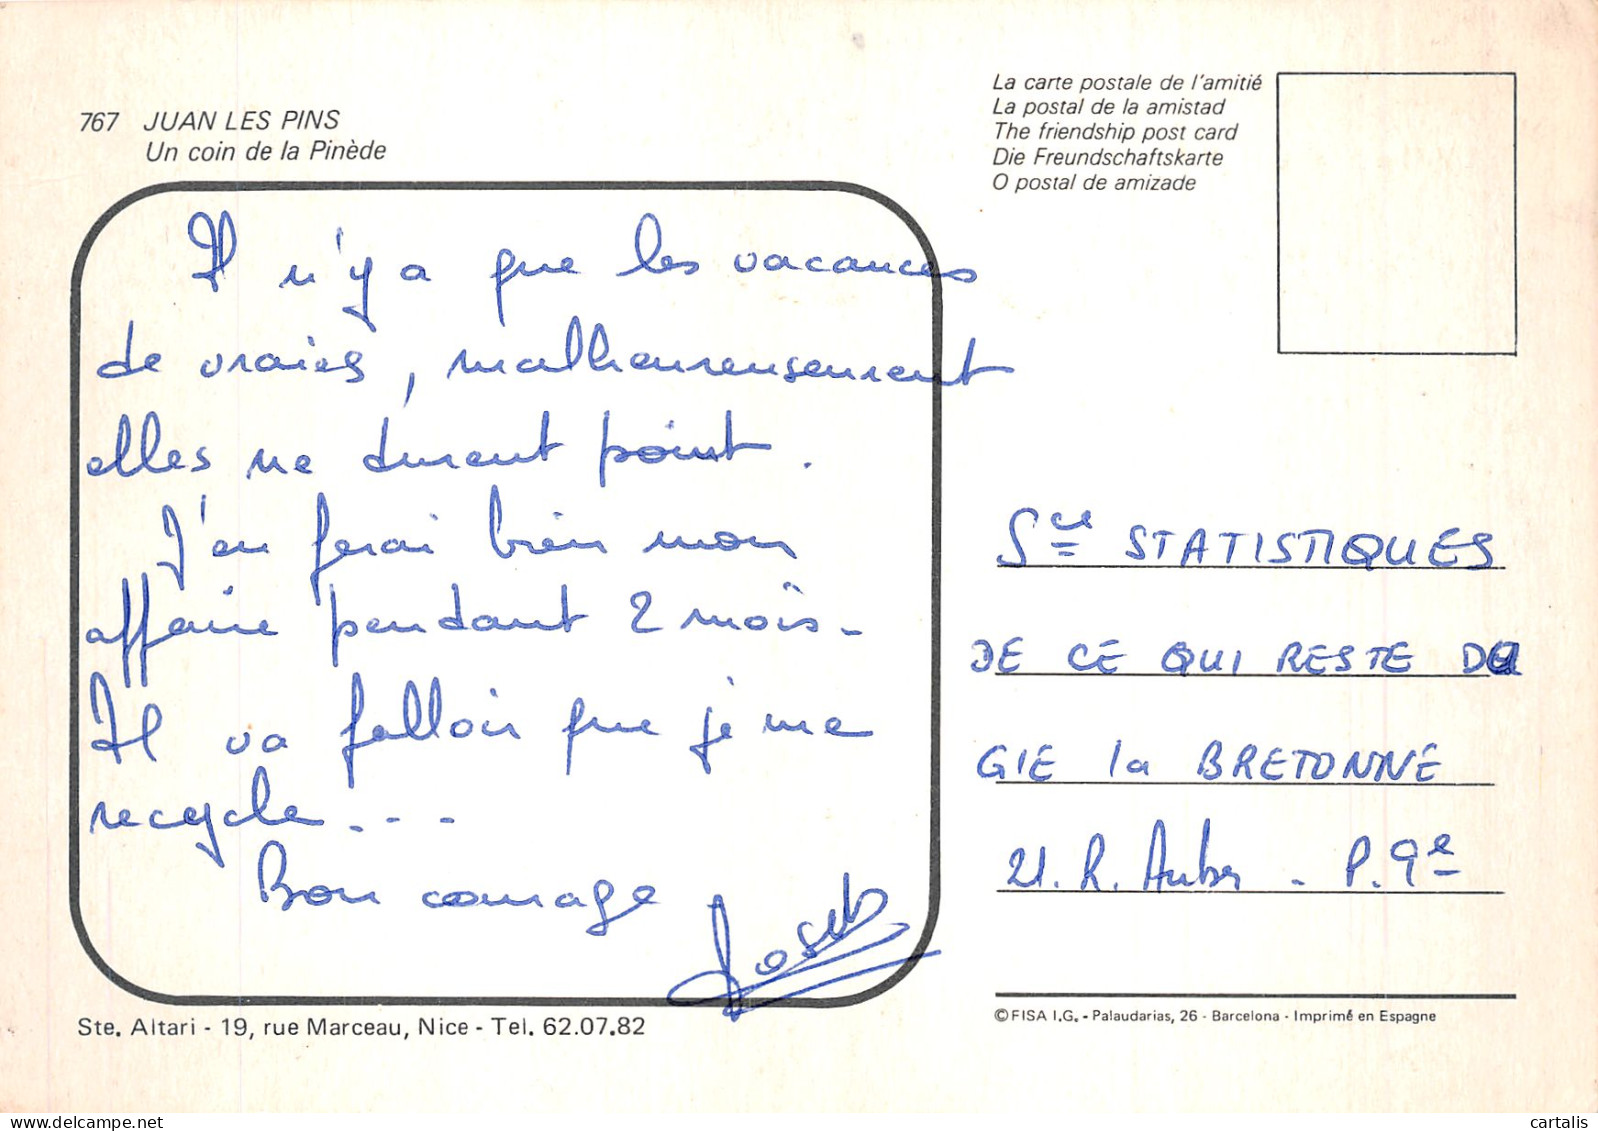 767 JUAN LES PINS
Un coin de la Pinède
La carte postale de l'amitié
La postal de la amistad
The friendship post card
Die Freundschaftskarte
O postal de amizade
Il n'y a que les vacances
de vraies, malheureusement
elles ne durent point.
J'en ferai bien mon
affaire pendant 2 mois-
Il va falloir que je me
recycle...
Bon courage
Sce STATISTIQUES
DE CE QUI RESTE DE
GIE la BRETONNE
21. R. Auber - P. 9e
Ste. Altari - 19, rue Marceau, Nice - Tel. 62.07.82
©FISA I.G. - Palaudarias, 26 - Barcelona - Imprimé en Espagne
cartalis